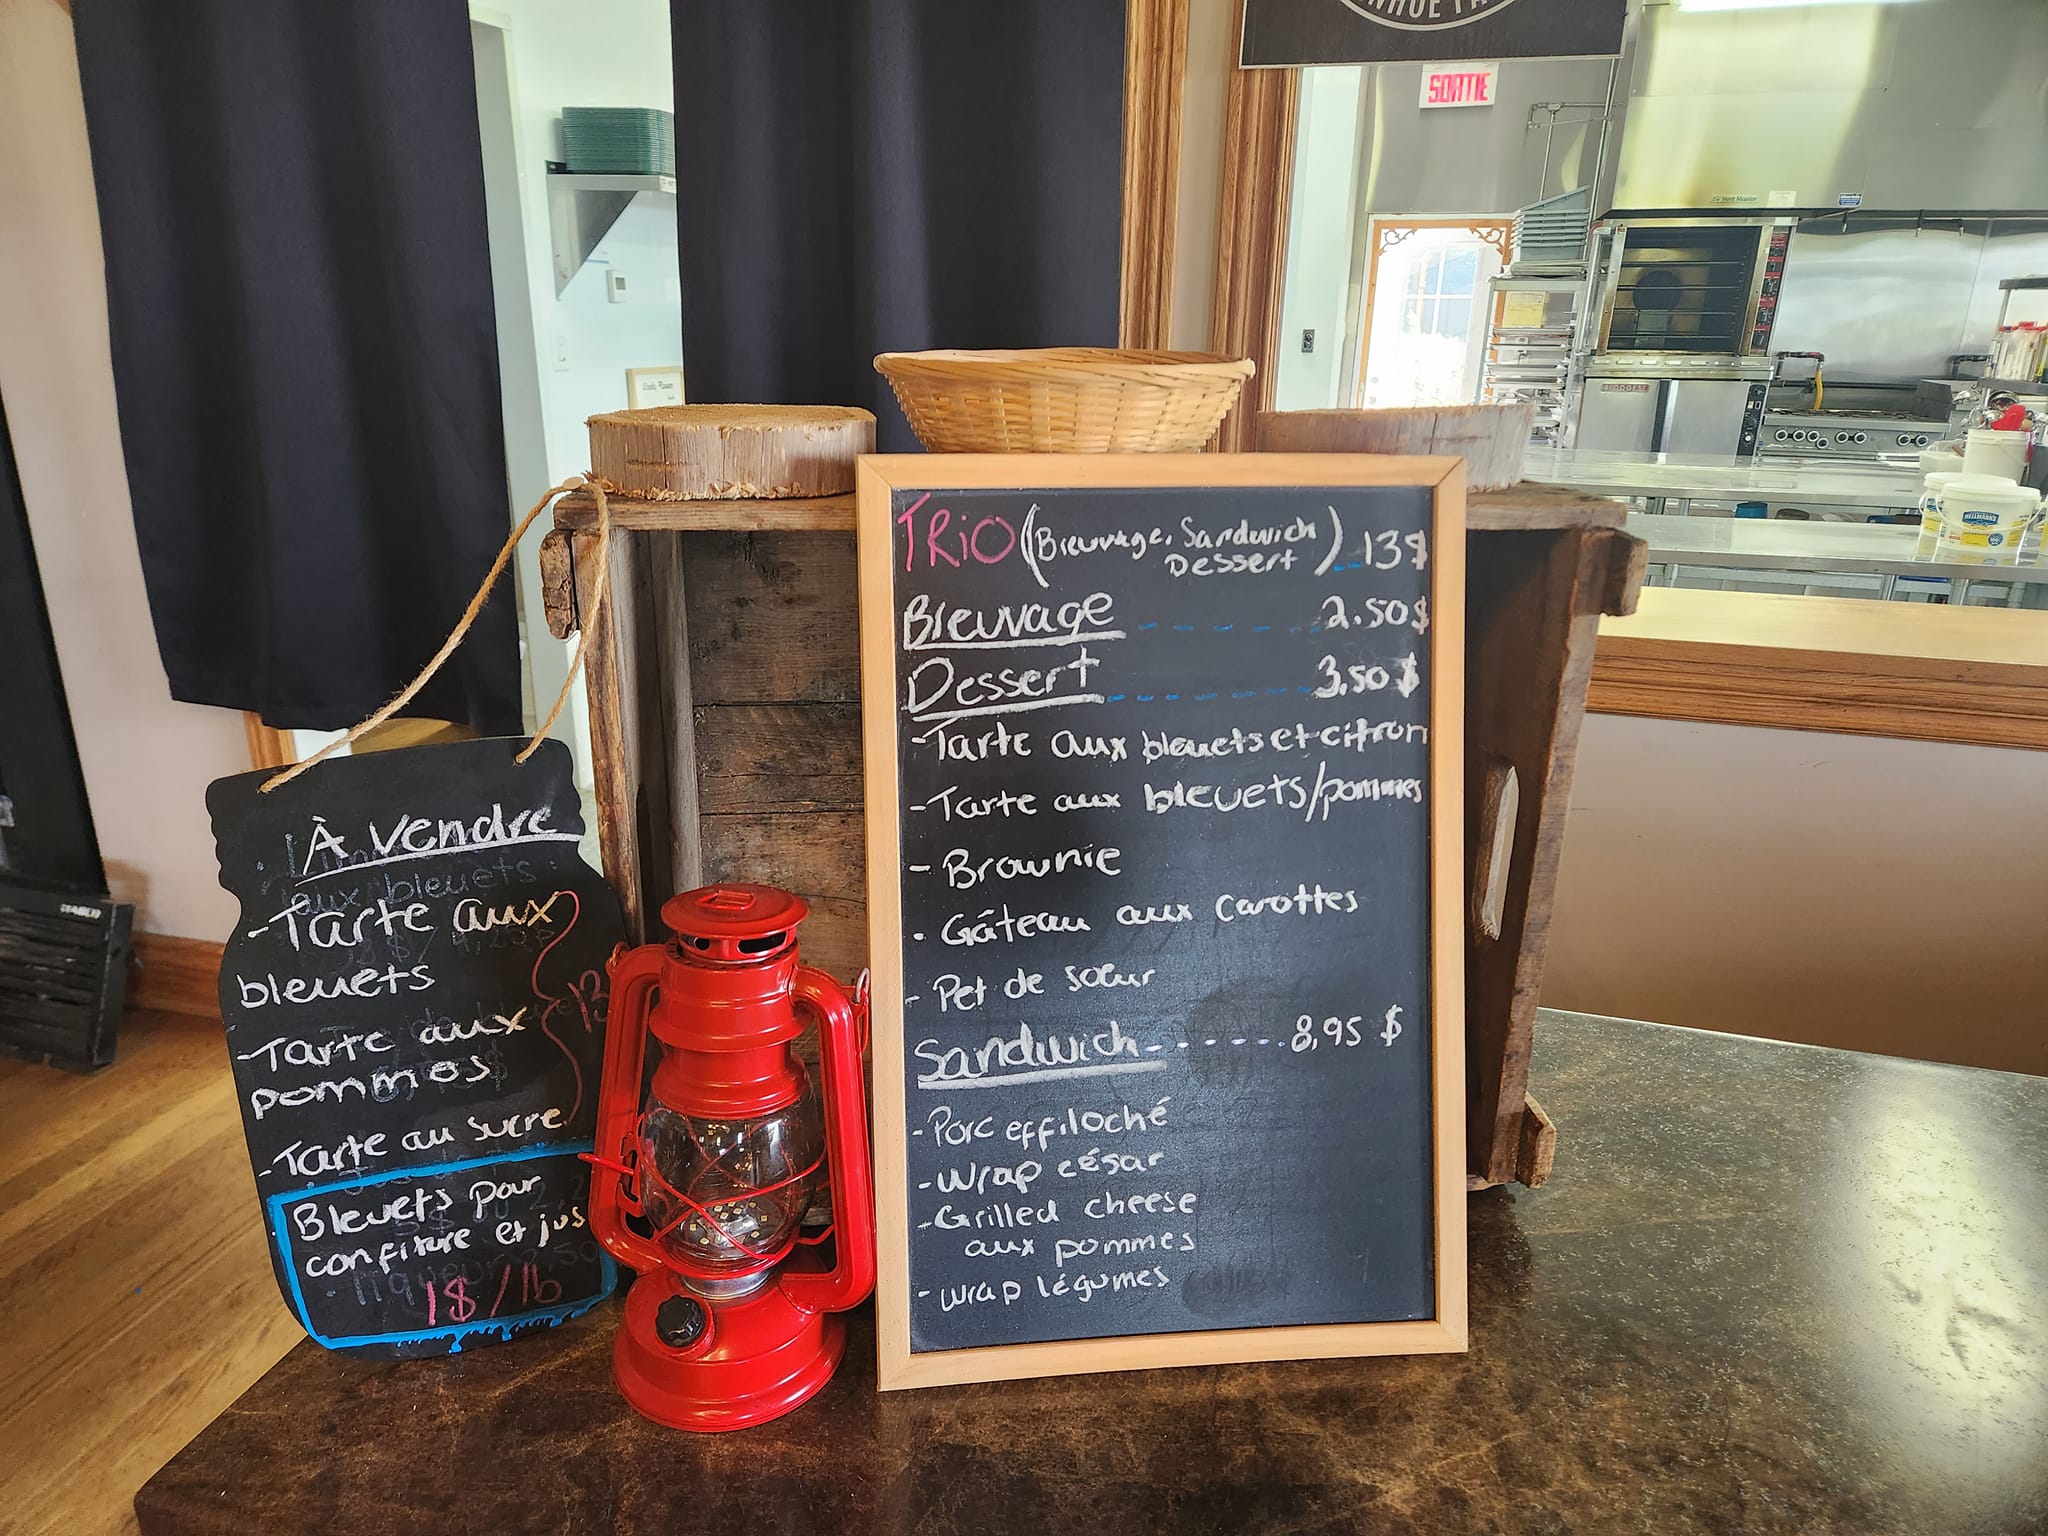 SORTIE
Vent Master
BLODGETT
HELLMANN'S
TRiO (Breuvage, Sandwich
Dessert) 13$
Breuvage 2.50$
Dessert 3,50$
-Tarte aux bleuets et citron
-Tarte aux bleuets/pommes
- Brownie
- Gâteau aux carottes
- Pet de sœur
Sandwich 8,95 $
- Porc effiloché
- Wrap césar
- Grilled cheese
aux pommes
- wrap légumes
À Vendre
-Tarte aux
bleuets
-Tarte aux
pommes
-Tarte au sucre
13
Bleuets pour
confiture et jus
1$/lb